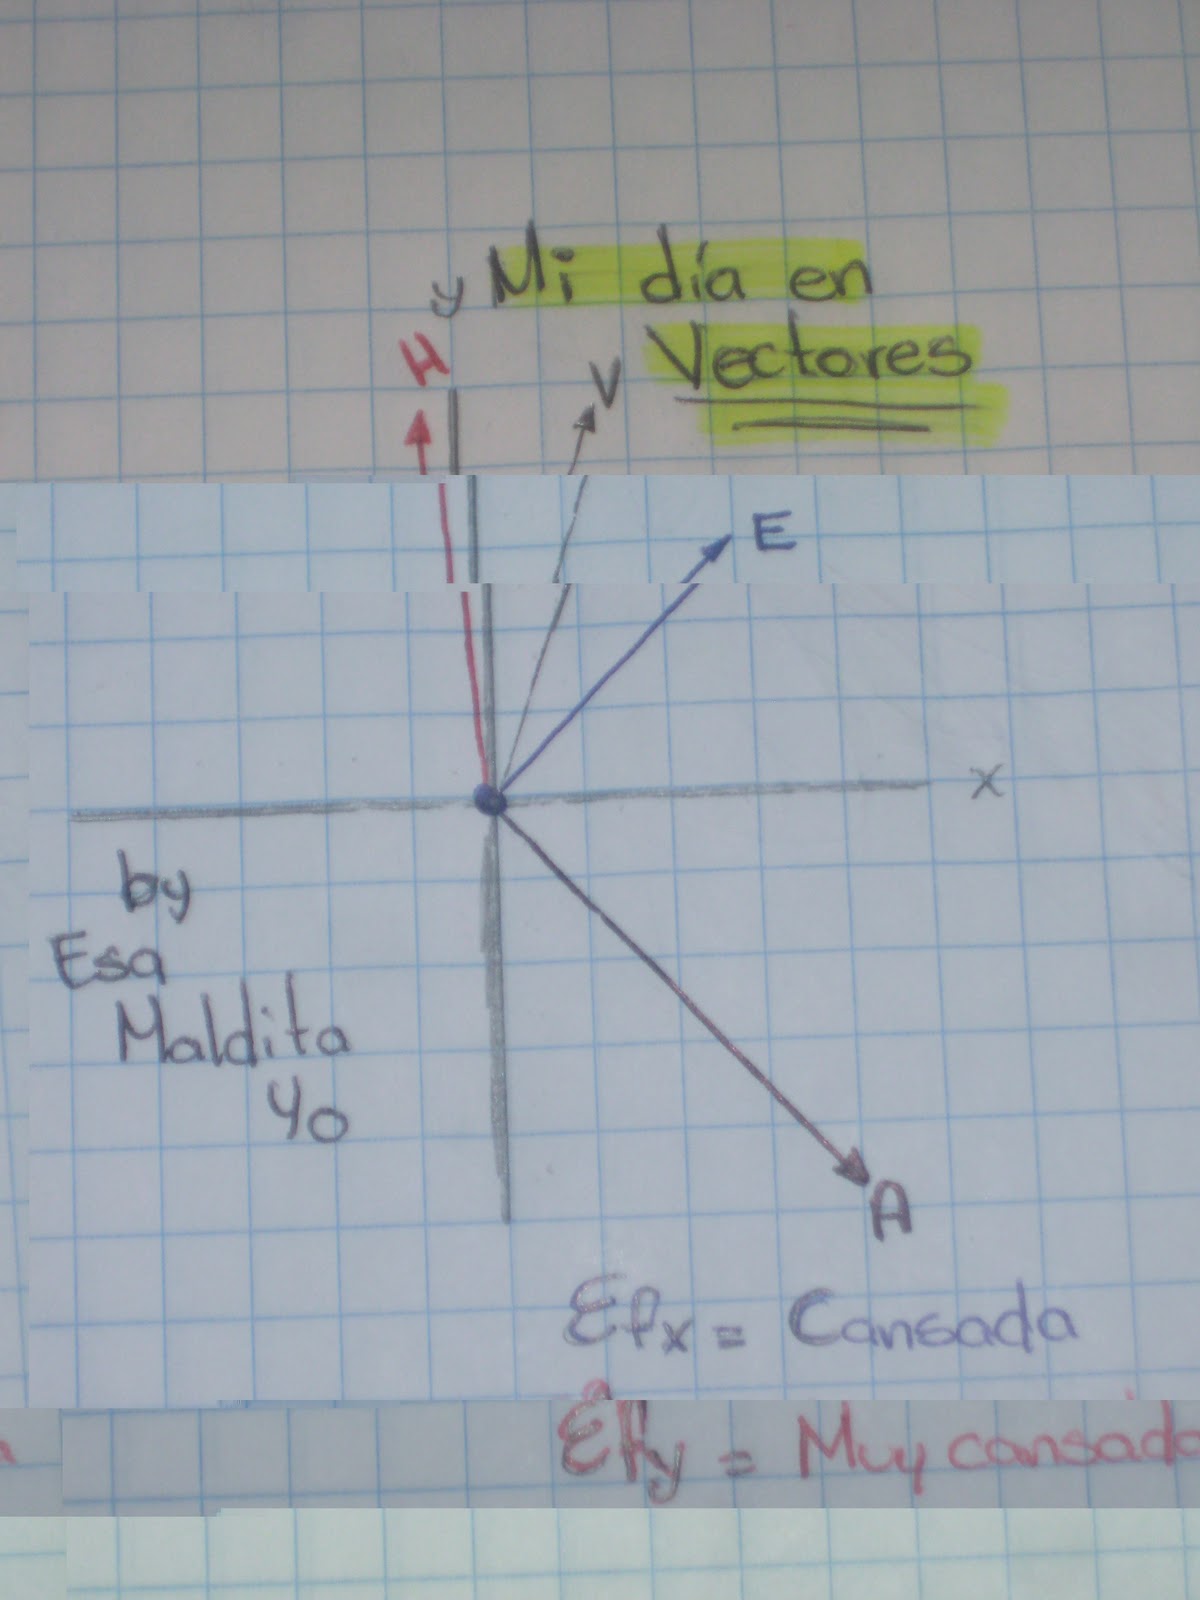 y Mi día en
Vectores
H
V
E
x
by
Esa
Maldita
Yo
A
Σfx = Cansada
Σfy = Muy cansada